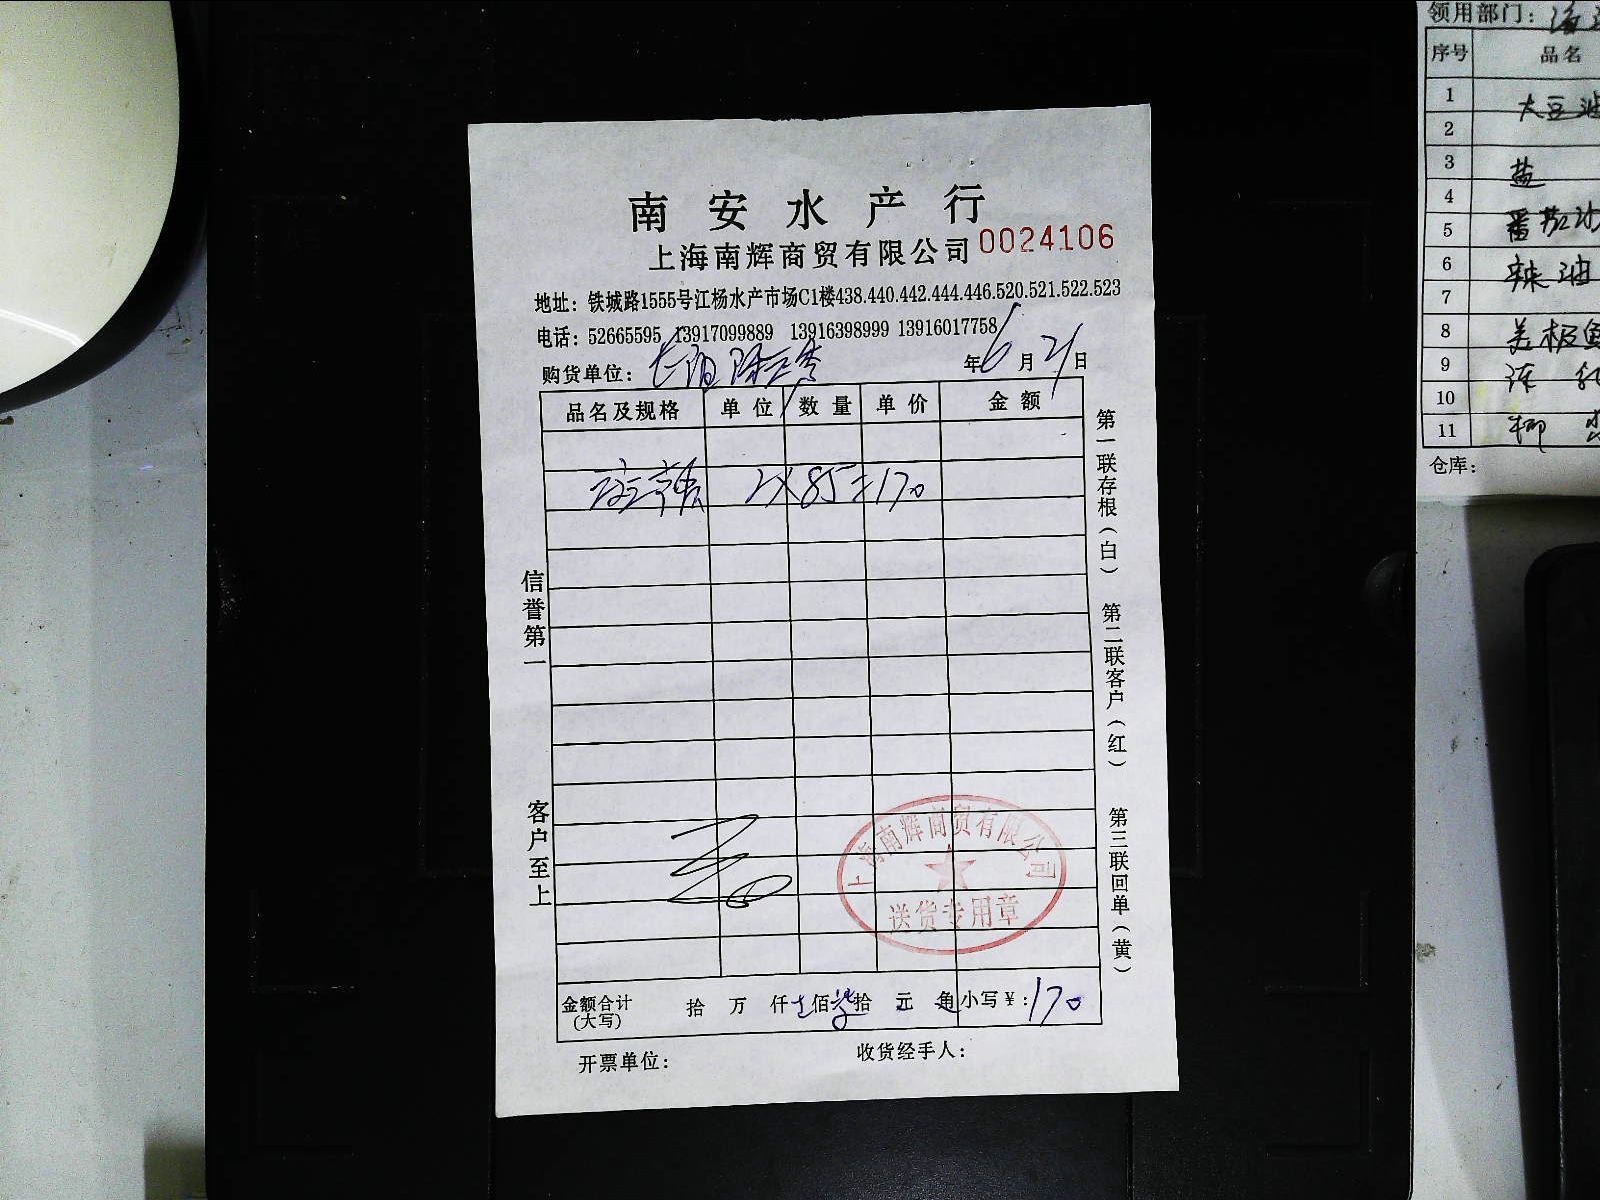 南安水产行
上海南辉商贸有限公司 0024106
地址：铁城路1555号江杨水产市场C1楼438.440.442.444.446.520.521.522.523
电话：52665595 13917099889 13916398999 13916017758
购货单位： 年6月21日
品名及规格 单位 数量 单价 金额
2X85=170
信誉第一
客户至上
第一联存根（白）
第二联客户（红）
第三联回单（黄）
上海南辉商贸有限公司
送货专用章
金额合计 拾 万 仟 佰 拾 元 角 小写￥：170
(大写)
开票单位： 收货经手人：
领用部门：
序号 品名
1 大豆油
2
3 盐
4
5
6 辣油
7
8 美极鱼
9
10
11 柳
仓库：